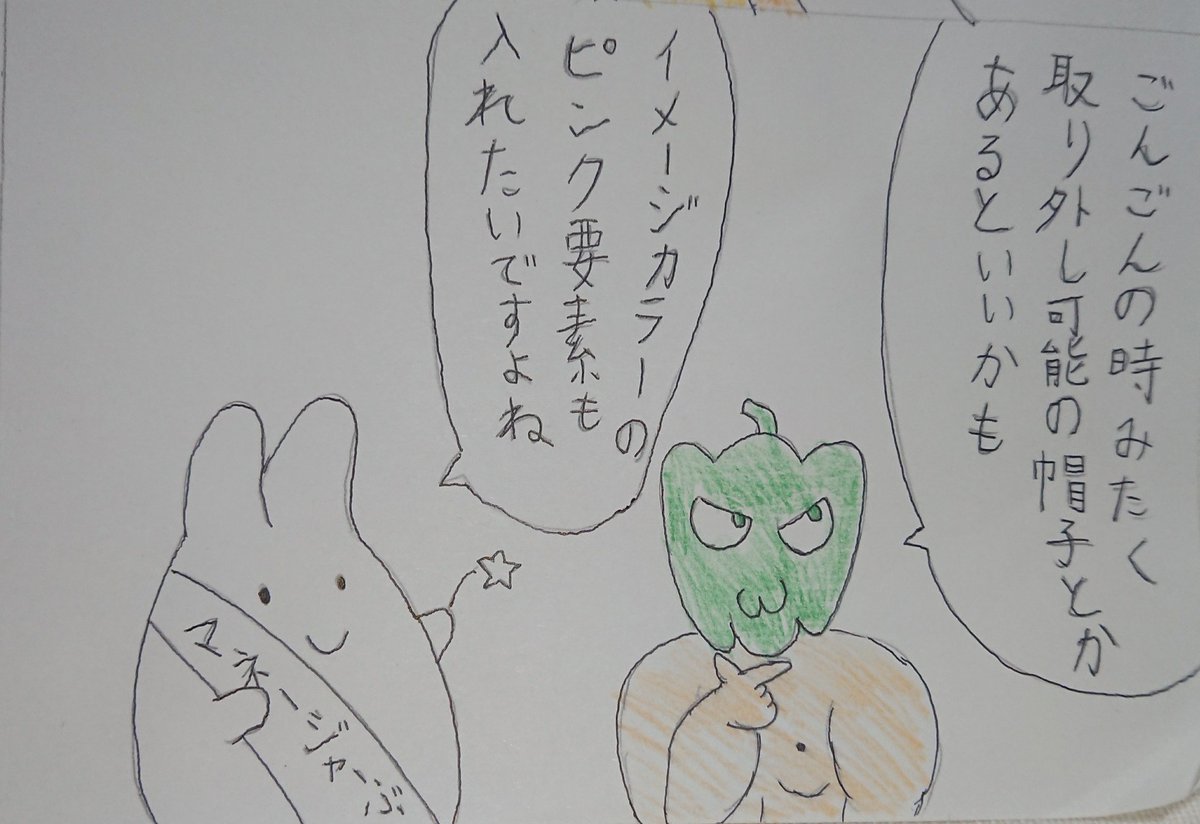 ごんごんの時みたく
取り外し可能の帽子とか
あるといいかも
イメージカラーの
ピンク要素も
入れたいですよね
マネージャーぶ